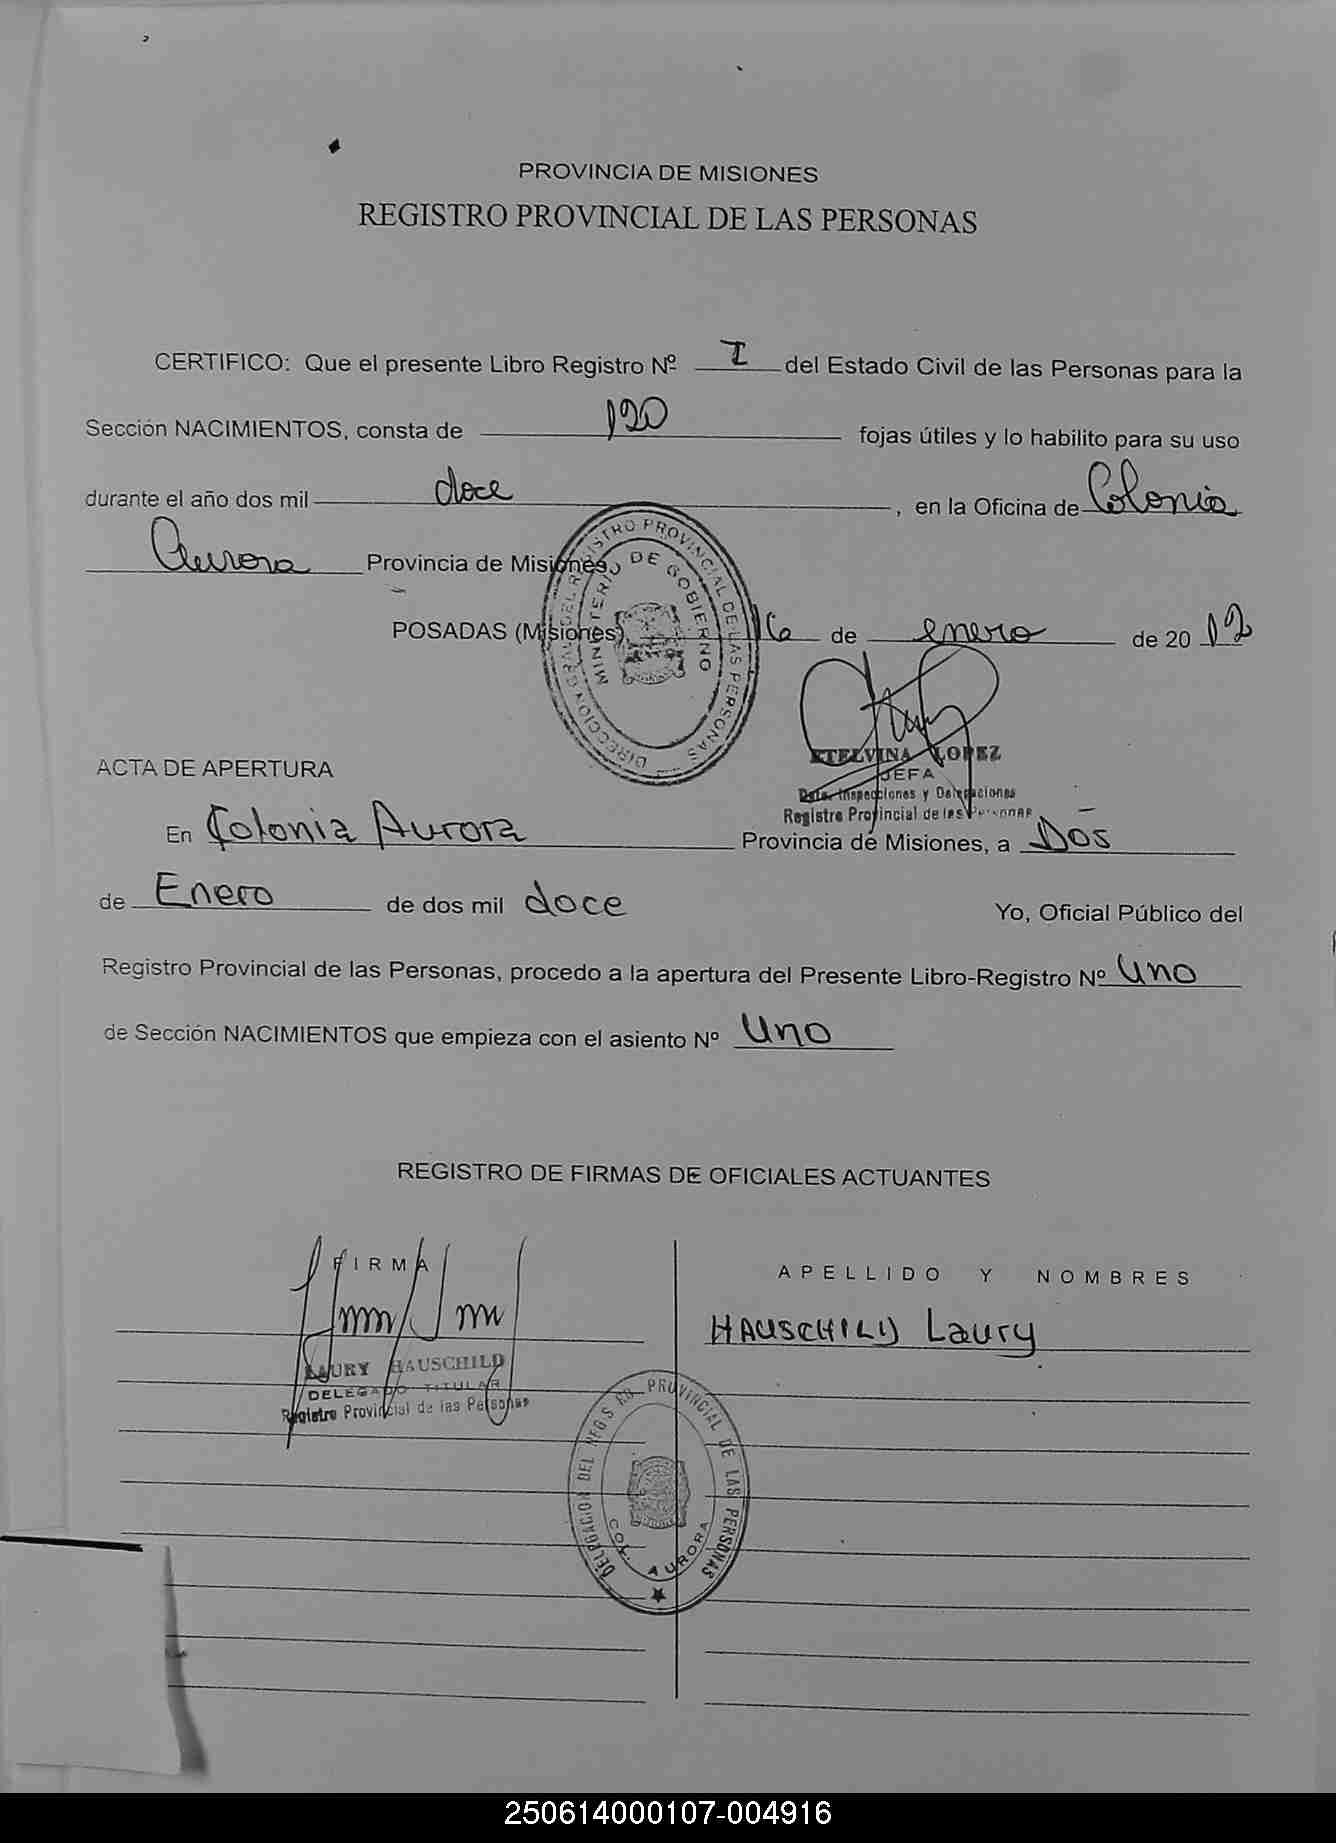 PROVINCIA DE MISIONES
REGISTRO PROVINCIAL DE LAS PERSONAS
CERTIFICO: Que el presente Libro Registro Nº I del Estado Civil de las Personas para la
Sección NACIMIENTOS, consta de 120 fojas útiles y lo habilito para su uso
durante el año dos mil doce, en la Oficina de Colonia
Aurora Provincia de Misiones.
POSADAS (Misiones) 16 de enero de 2012
DIRECCION GRAL DEL REGISTRO PROVINCIAL DE LAS PERSONAS
MINISTERIO DE GOBIERNO
ETELVINA LOPEZ
JEFA
Dpto. Inspecciones y Delegaciones
Registro Provincial de las Personas
ACTA DE APERTURA
En Colonia Aurora Provincia de Misiones, a Dos
de Enero de dos mil doce Yo, Oficial Público del
Registro Provincial de las Personas, procedo a la apertura del Presente Libro-Registro Nº Uno
de Sección NACIMIENTOS que empieza con el asiento Nº Uno
REGISTRO DE FIRMAS DE OFICIALES ACTUANTES
FIRMA APELLIDO Y NOMBRES
HAUSCHILD Laury
LAURY HAUSCHILD
DELEGADO TITULAR
Registro Provincial de las Personas
DELEGACION DEL REGISTRO PROVINCIAL DE LAS PERSONAS
COL. AURORA
250614000107-004916